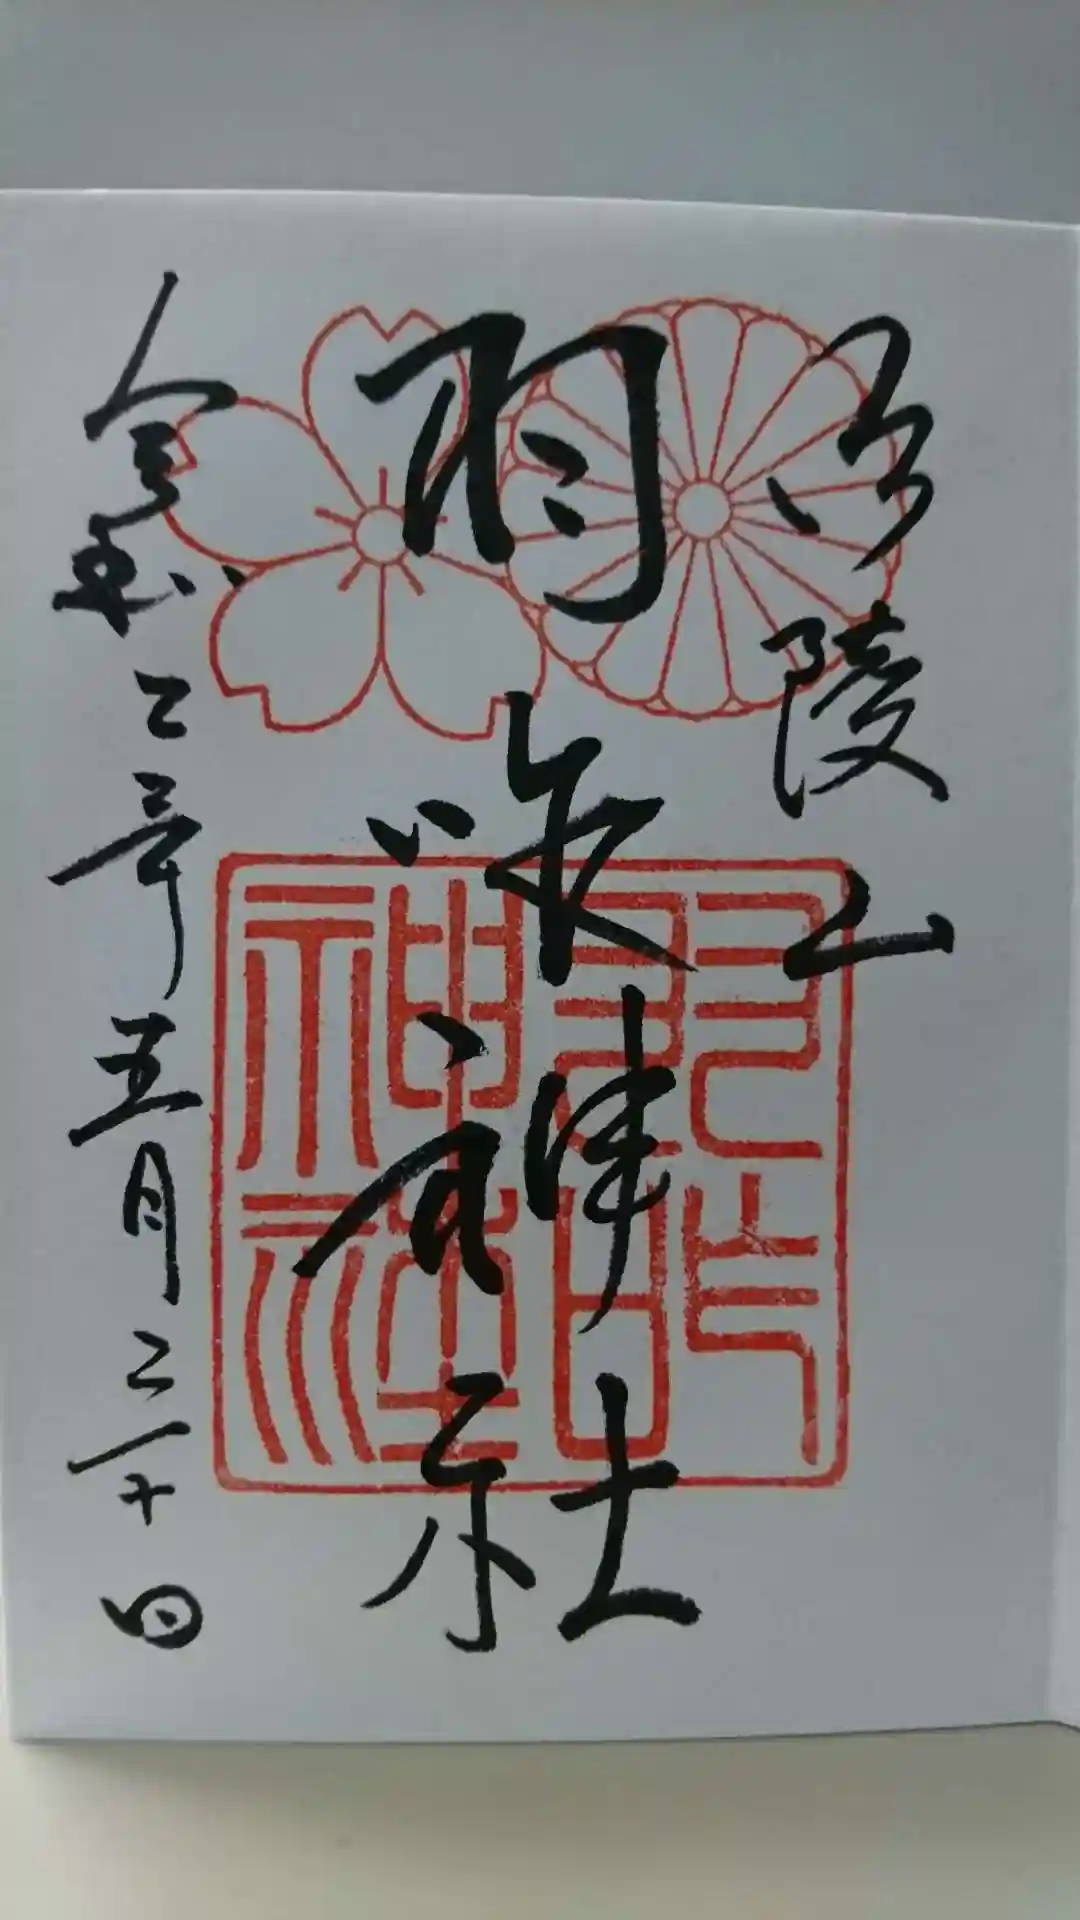 御陵山
羽咋神社
令和二年五月二十日
羽咋
神社